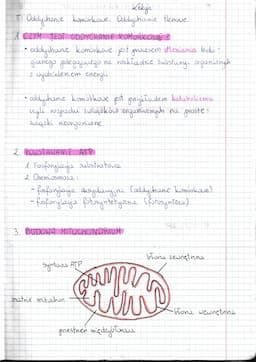 Lekcja
T: Oddychanie komórkowe. Oddychanie tlenowe.
1. CZYM JEST ODDYCHANIE KOMÓRKOWE?
• oddychanie komórkowe jest procesem utleniania biolo-
gicznego polegającego na rozkładzie substancji organicznych
z wydzieleniem energii
• oddychanie komórkowe jest przykładem katabolizmu
czyli rozpadu związków organicznych na proste
związki nieorganiczne.
2. POWSTAWANIE ATP
1. Fosforylacja substratowa
2. Chemiosmoza:
- fosforylacja oksydacyjna (oddychanie komórkowe)
- fosforylacja fotosyntetyczna (fotosynteza)
3. BUDOWA MITOCHONDRIUM
błona zewnętrzna
syntaza ATP
matrix
błona wewnętrzna
przestrzeń międzybłonowa